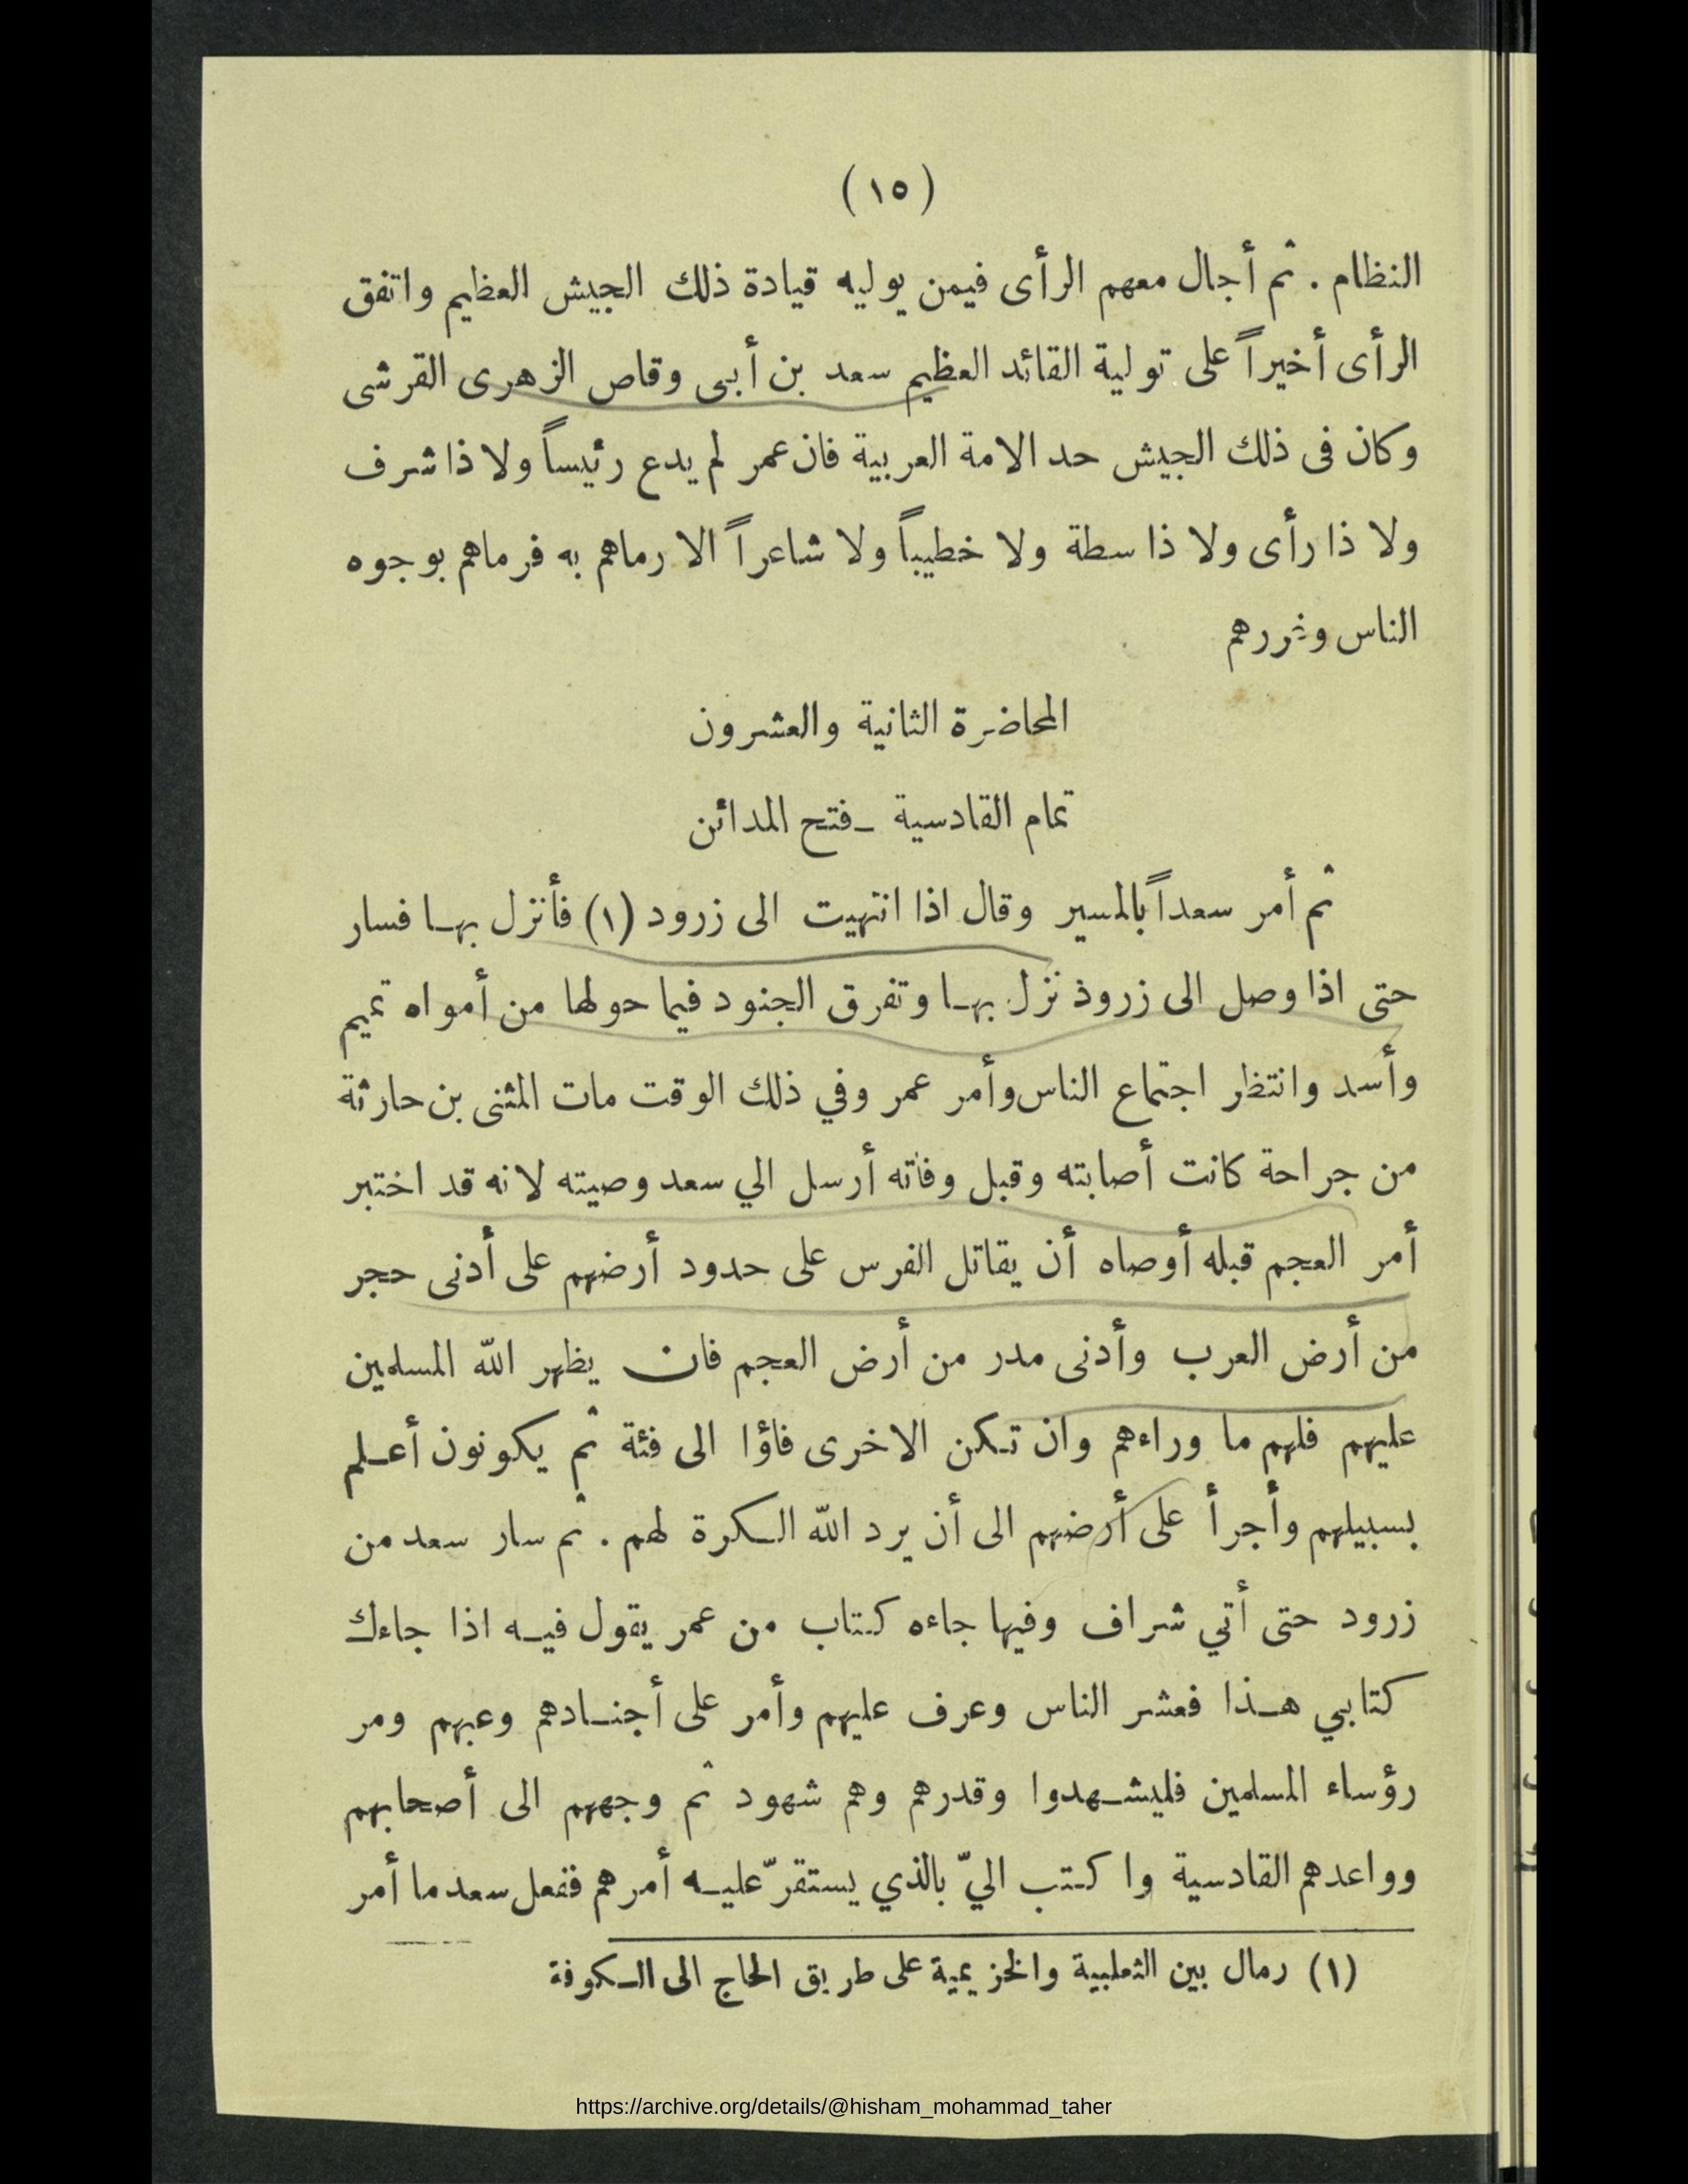 (١٥)
النظام . ثم أجال معهم الرأى فيمن يوليه قيادة ذلك الجيش العظيم واتفق
الرأى أخيراً على تولية القائد العظيم سعد بن أبى وقاص الزهرى القرشى
وكان فى ذلك الجيش حد الامة العربية فان عمر لم يدع رئيساً ولا ذا شرف
ولا ذا رأى ولا ذا سطة ولا خطيباً ولا شاعراً الا رماهم به فرماهم بوجوه
الناس وغررهم
المحاضرة الثانية والعشرون
تمام القادسية ـ فتح المدائن
ثم أمر سعداً بالمسير وقال اذا انتهيت الى زرود (١) فأنزل بهـا فسار
حتى اذا وصل الى زروذ نزل بهـا وتفرق الجنود فيما حولها من أمواه تميم
وأسد وانتظر اجتماع الناس وأمر عمر وفي ذلك الوقت مات المثنى بن حارثة
من جراحة كانت أصابته وقبل وفاته أرسل الي سعد وصيته لانه قد اختبر
أمر العجم قبله أوصاه أن يقاتل الفرس على حدود أرضهم على أدنى حجر
من أرض العرب وأدنى مدر من أرض العجم فان يظهر الله المسلمين
عليهم فلهم ما وراءهم وان تـكن الاخرى فاؤا الى فئة ثم يكونون أعـلم
بسبيلهم وأجرأ على أرضهم الى أن يرد الله الـكرة لهم . ثم سار سعد من
زرود حتى أتي شراف وفيها جاءه كتاب من عمر يقول فيـه اذا جاءك
كتابي هـذا فعشر الناس وعرف عليهم وأمر على أجنـادهم وعبهم ومر
رؤساء المسلمين فليشـهدوا وقدرهم وهم شهود ثم وجههم الى أصحابهم
وواعدهم القادسية واكتب اليّ بالذي يستقرّ عليـه أمرهم ففعل سعد ما أمر
(١) رمال بين الثعلبية والخزيمية على طريق الحاج الى الـكوفة
https://archive.org/details/@hisham_mohammad_taher